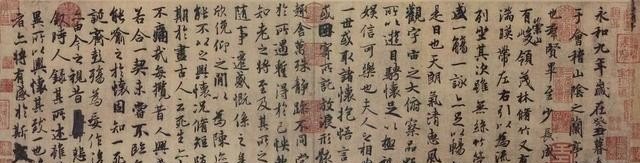 永和九年歲在癸丑暮
于會稽山陰之蘭亭
也群賢畢至少長咸
有崇山峻領茂林脩竹又
湍暎帶左右引以為流
列坐其次雖無絲竹管
盛一觴一詠亦足以暢
是日也天朗氣清惠風
觀宇宙之大俯察品類
所以遊目騁懷足以極
娛信可樂也夫人之相
一世或取諸懷抱悟言
或因寄所託放浪形骸
趣舍萬殊靜躁不同當
於所遇蹔得於己怏然
知老之將至及其所之
隨事遷感慨係之矣
欣俛仰之閒以為陳迹
能不以之興懷況脩短隨
期於盡古人云死生亦
不痛哉每攬昔人興
若合一契未嘗不臨
能喻之於懷固知一死
誕齊彭殤為妄作後
亦由今之視昔悲
敘時人錄其所述雖
異所以興懷其致一也
者亦將有感於斯